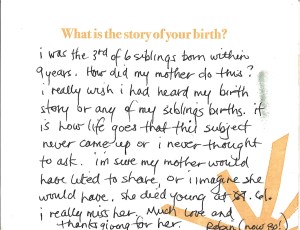 What is the story of your birth?
i was the 3rd of 6 siblings born within
9 years. How did my mother do this?
i really wish i had heard my birth
story or any of my siblings births. it
is how life goes that this subject
never came up or i never thought
to ask. i'm sure my mother would
have liked to share, or i imagine she
would have. she died young at 61.
i really miss her. Much love and
thanksgiving for her. (now 80!)